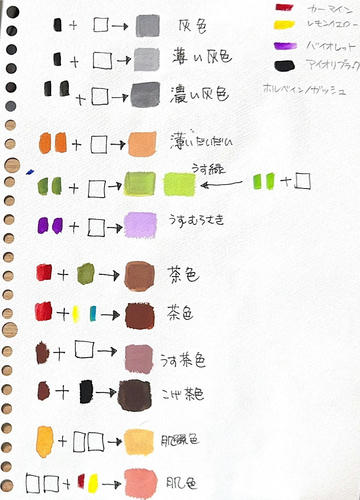 カーマイン
レモンイエロー
バイオレット
アイボリブラック
ホルベイン/ガッシュ
灰色
薄い灰色
濃い灰色
薄いだいだい
うす緑
うすむらさき
茶色
茶色
うす茶色
こげ茶色
肌色
肌色